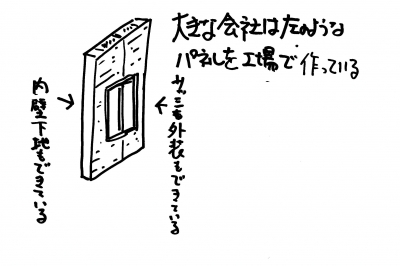 大きな会社は左のような
パネルを工場で作っている
内壁下地もできている
サッシも外装もできている